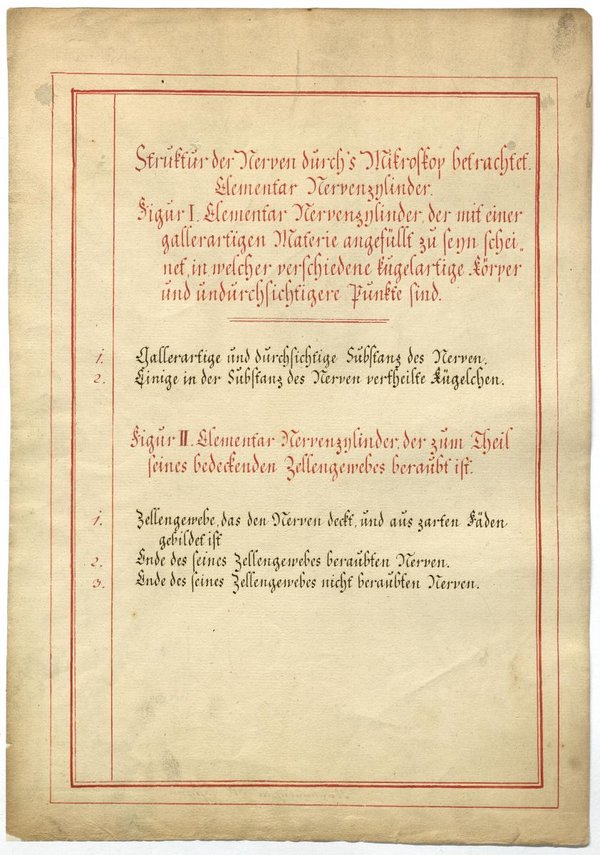 Struktur der Nerven durch's Mikroskop betrachtet.
Elementar Nervenzylinder.
Figur I. Elementar Nervenzylinder, der mit einer
gallerartigen Materie angefüllt zu seyn schei„
net, in welcher verschiedene kugelartige Körper
und undurchsichtigere Punkte sind.
1. Gallerartige und durchsichtige Substanz des Nerven.
2. Einige in der Substanz des Nerven vertheilte Kügelchen.
Figur II. Elementar Nervenzylinder, der zum Theil
seines bedeckenden Zellengewebes beraubt ist.
1. Zellengewebe, das den Nerven deckt, und aus zarten Fäden
gebildet ist
2. Ende des seines Zellengewebes beraubten Nerven.
3. Ende des seines Zellengewebes nicht beraubten Nerven.